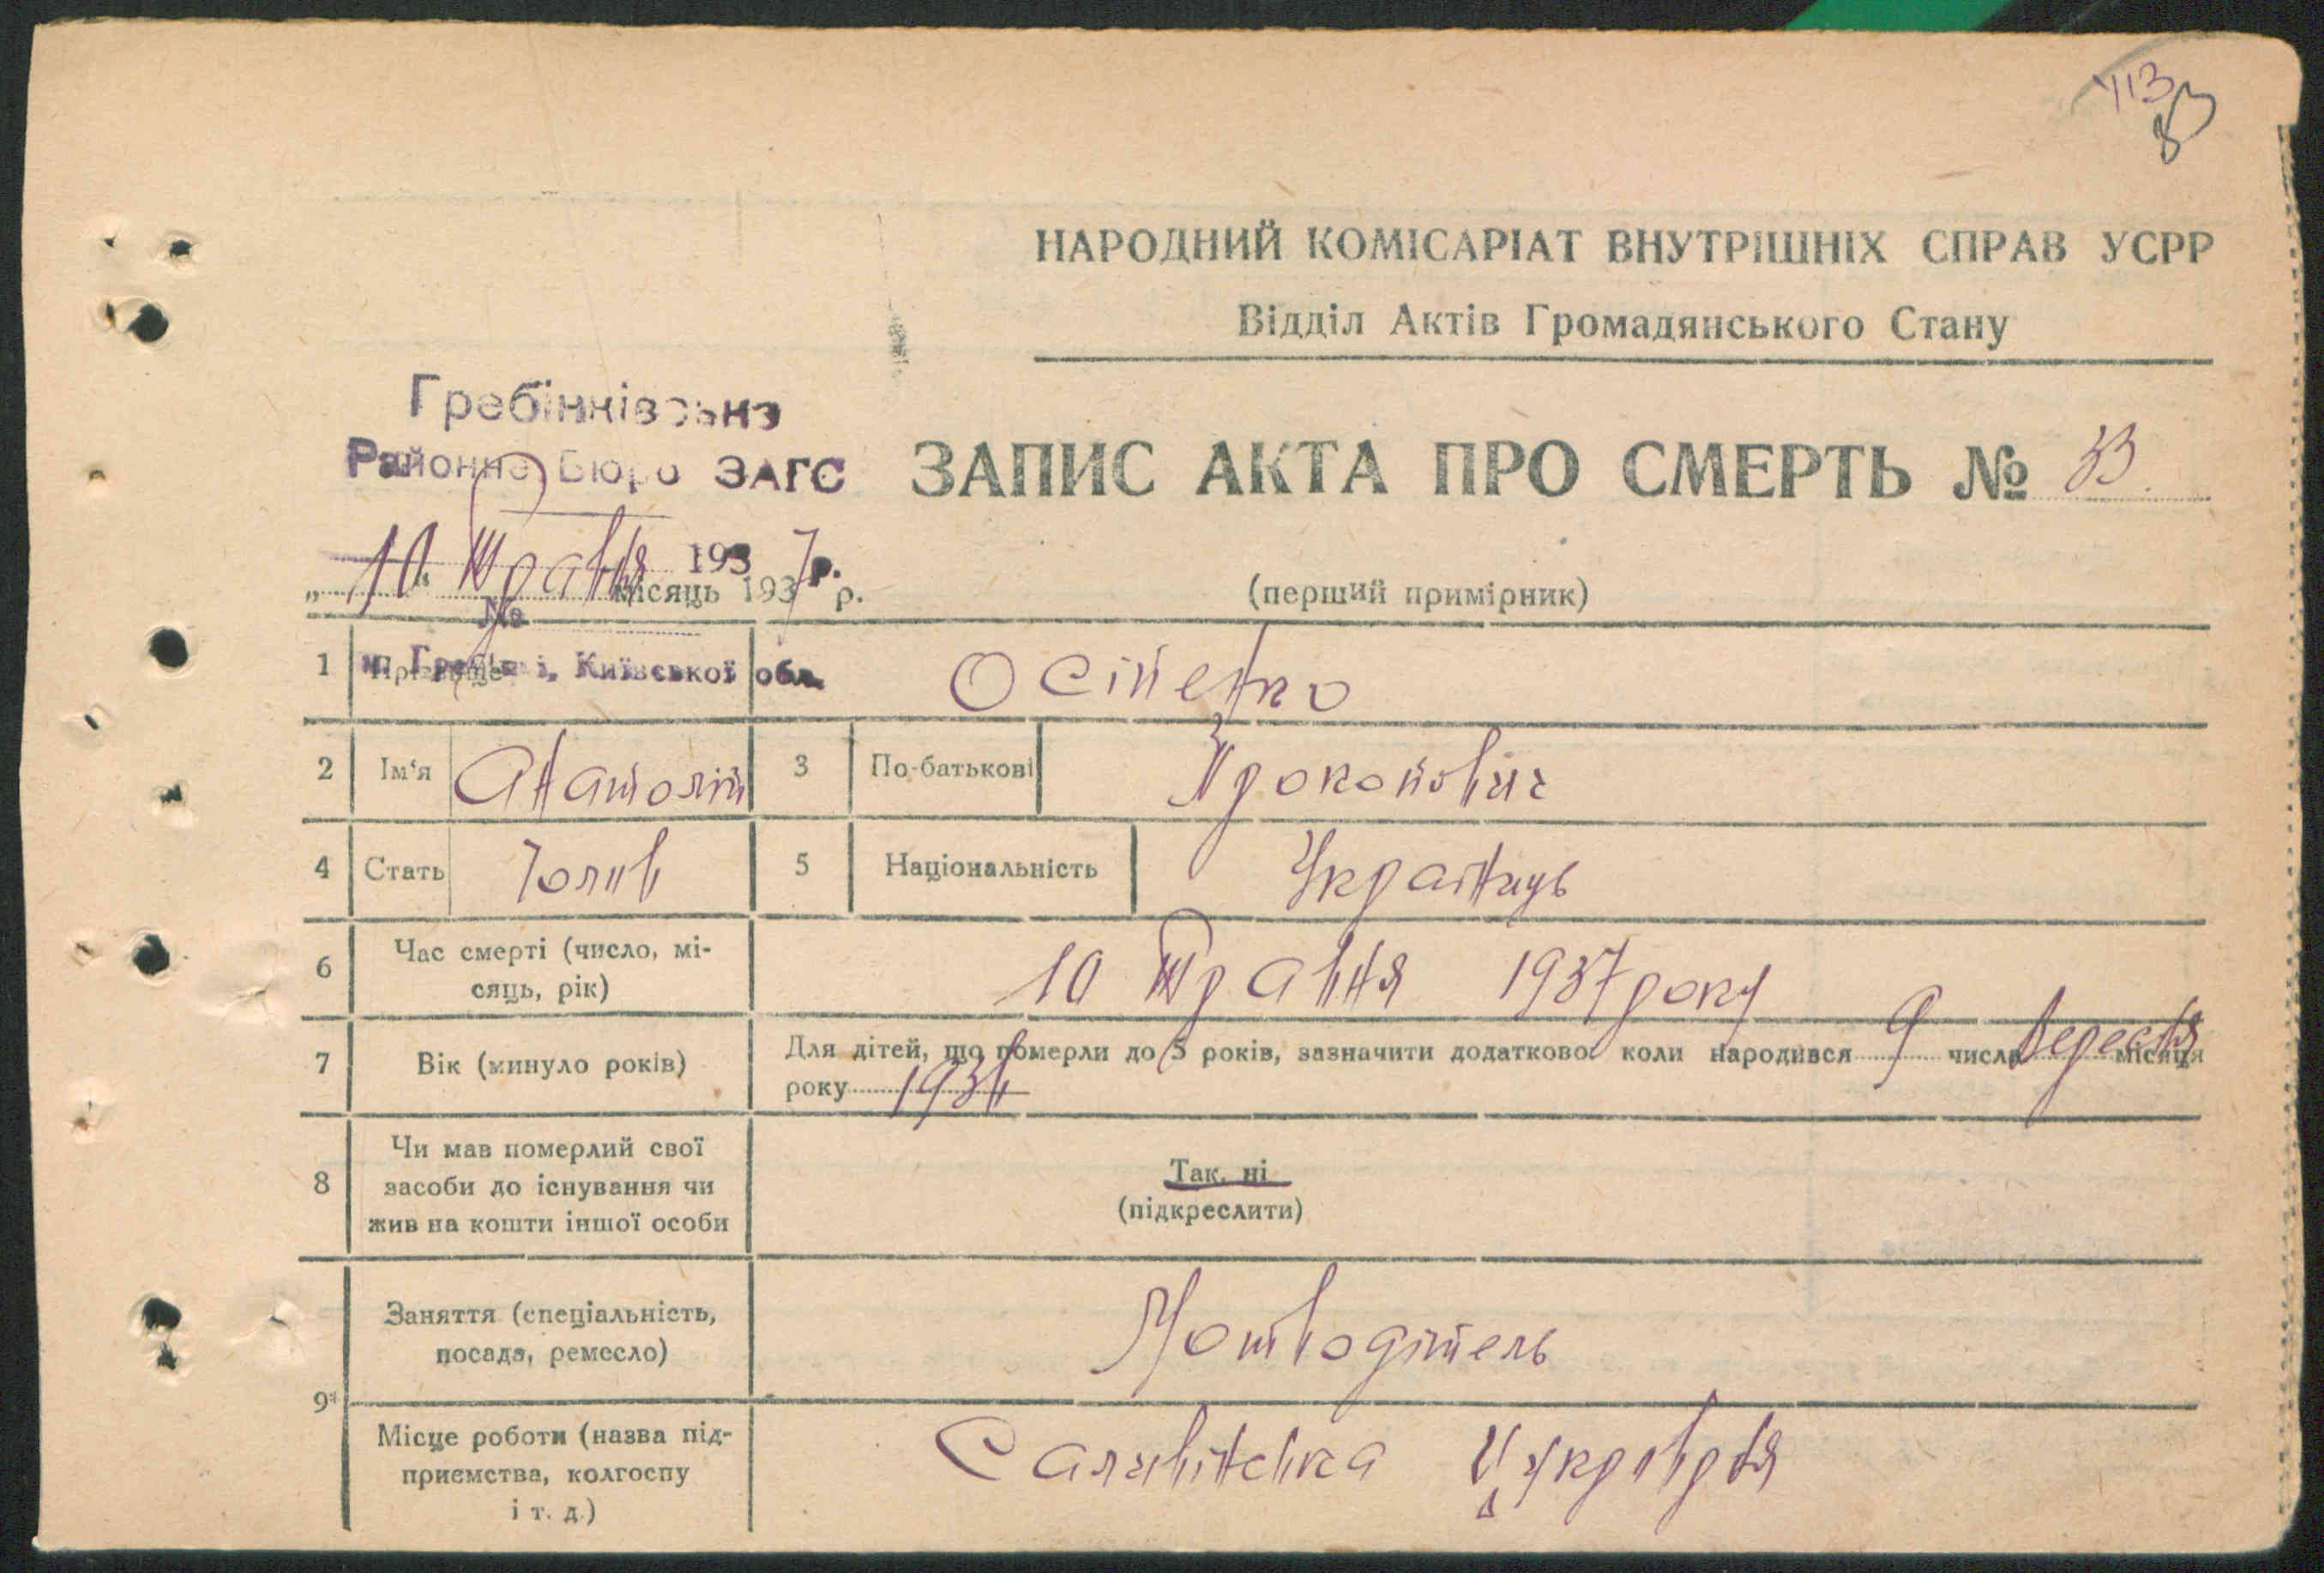 113
33
НАРОДНИЙ КОМІСАРІАТ ВНУТРІШНІХ СПРАВ УСРР
Відділ Актів Громадянського Стану
Гребінківське
Районне Бюро ЗАГС
ЗАПИС АКТА ПРО СМЕРТЬ № 33
193 р.
„10“ Травня місяць 1937 р.
№
(перший примірник)
1 Прізвище Осіпенко
м. Гребінкі, Київської обл.
2 Ім‘я Анатолій 3 По-батькові Прокопович
4 Стать Чолов 5 Національність Українець
6 Час смерті (число, мі-
сяць, рік) 10 Травня 1937 року
7 Вік (минуло років) Для дітей, що померли до 5 років, зазначити додатково: коли народився 9 числа Вересня місяця
року 1936
8 Чи мав померлий свої
засоби до існування чи
жив на кошти іншої особи
Так, ні
(підкреслити)
9 Заняття (спеціальність,
посада, ремесло)
Місце роботи (назва під-
приємства, колгоспу
і т. д.)
Саливінська Цукроварня